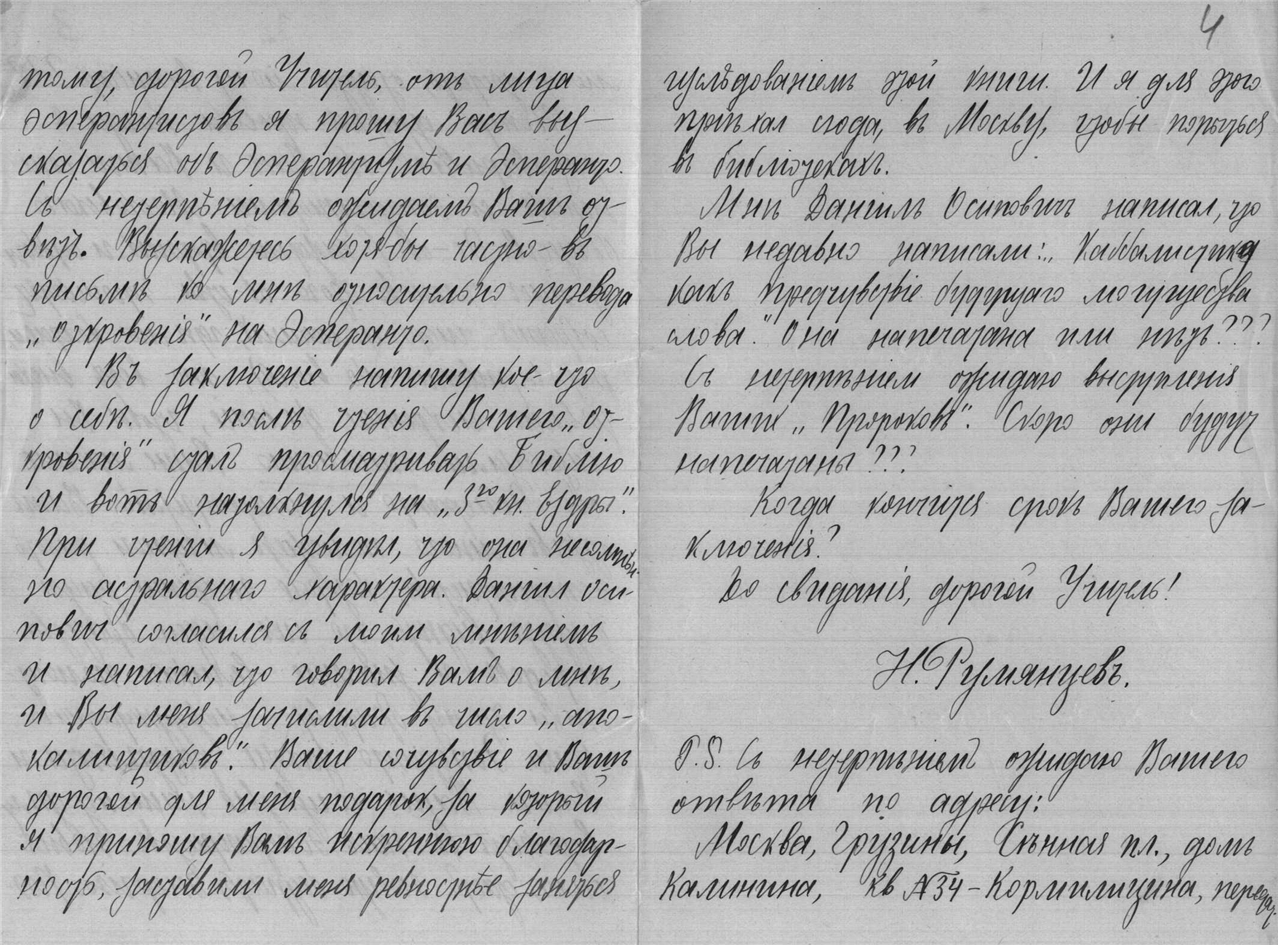 тому, дорогой Учитель, отъ лица
эсперантистовъ я прошу Васъ выс-
сказаться объ Эсперантизмѣ и Эсперанто.
Съ нетерпѣніемъ ожидаемъ Вашъ от-
вѣтъ. Выскажетесь хотябы частно въ
письмѣ ко мнѣ относительно перевода
„Откровенія" на Эсперанто.
Въ заключеніе напишу кое-что
о себѣ. Я послѣ чтенія Вашего „От-
кровенія" сталъ просматривать Библію
и вотъ натолкнулся на „3ю кн. Ездры".
При чтеніи я увидѣл, что она несомнѣн-
но астральнаго характера. Даніил Оси-
повичъ согласился съ моим мнѣніемъ
и написал, что говорил Вамъ о мнѣ,
и Вы меня зачислили въ число „апо-
калиптиковъ". Ваше сочувствіе и Вашъ
дорогой для меня подарок, за который
я приношу Вамъ искреннюю благодар-
ность, заставили меня ревностнѣе заняться
4
изслѣдованіемъ этой книги. И я для этого
пріѣхал сюда, въ Москву, чтобы порыться
въ библіотекахъ.
Мнѣ Даніилъ Осиповичъ написал, что
Вы недавно написали: „Каббалистика
какъ предчувствіе будущаго могущества
слова." Она напечатана или нѣтъ???
Съ нетерпѣніем ожидаю выступленія
Вашихъ „Пророковъ". Скоро они будут
напечатаны???
Когда кончится срокъ Вашего за-
ключенія?
До свиданія, дорогой Учитель!
Н. Румянцевъ.
P.S. Съ нетерпѣніемъ ожидаю Вашего
отвѣта по адресу:
Москва, Грузины, Сѣнная пл., домъ
Калинина, кв №34 - Кормилицина, передат.